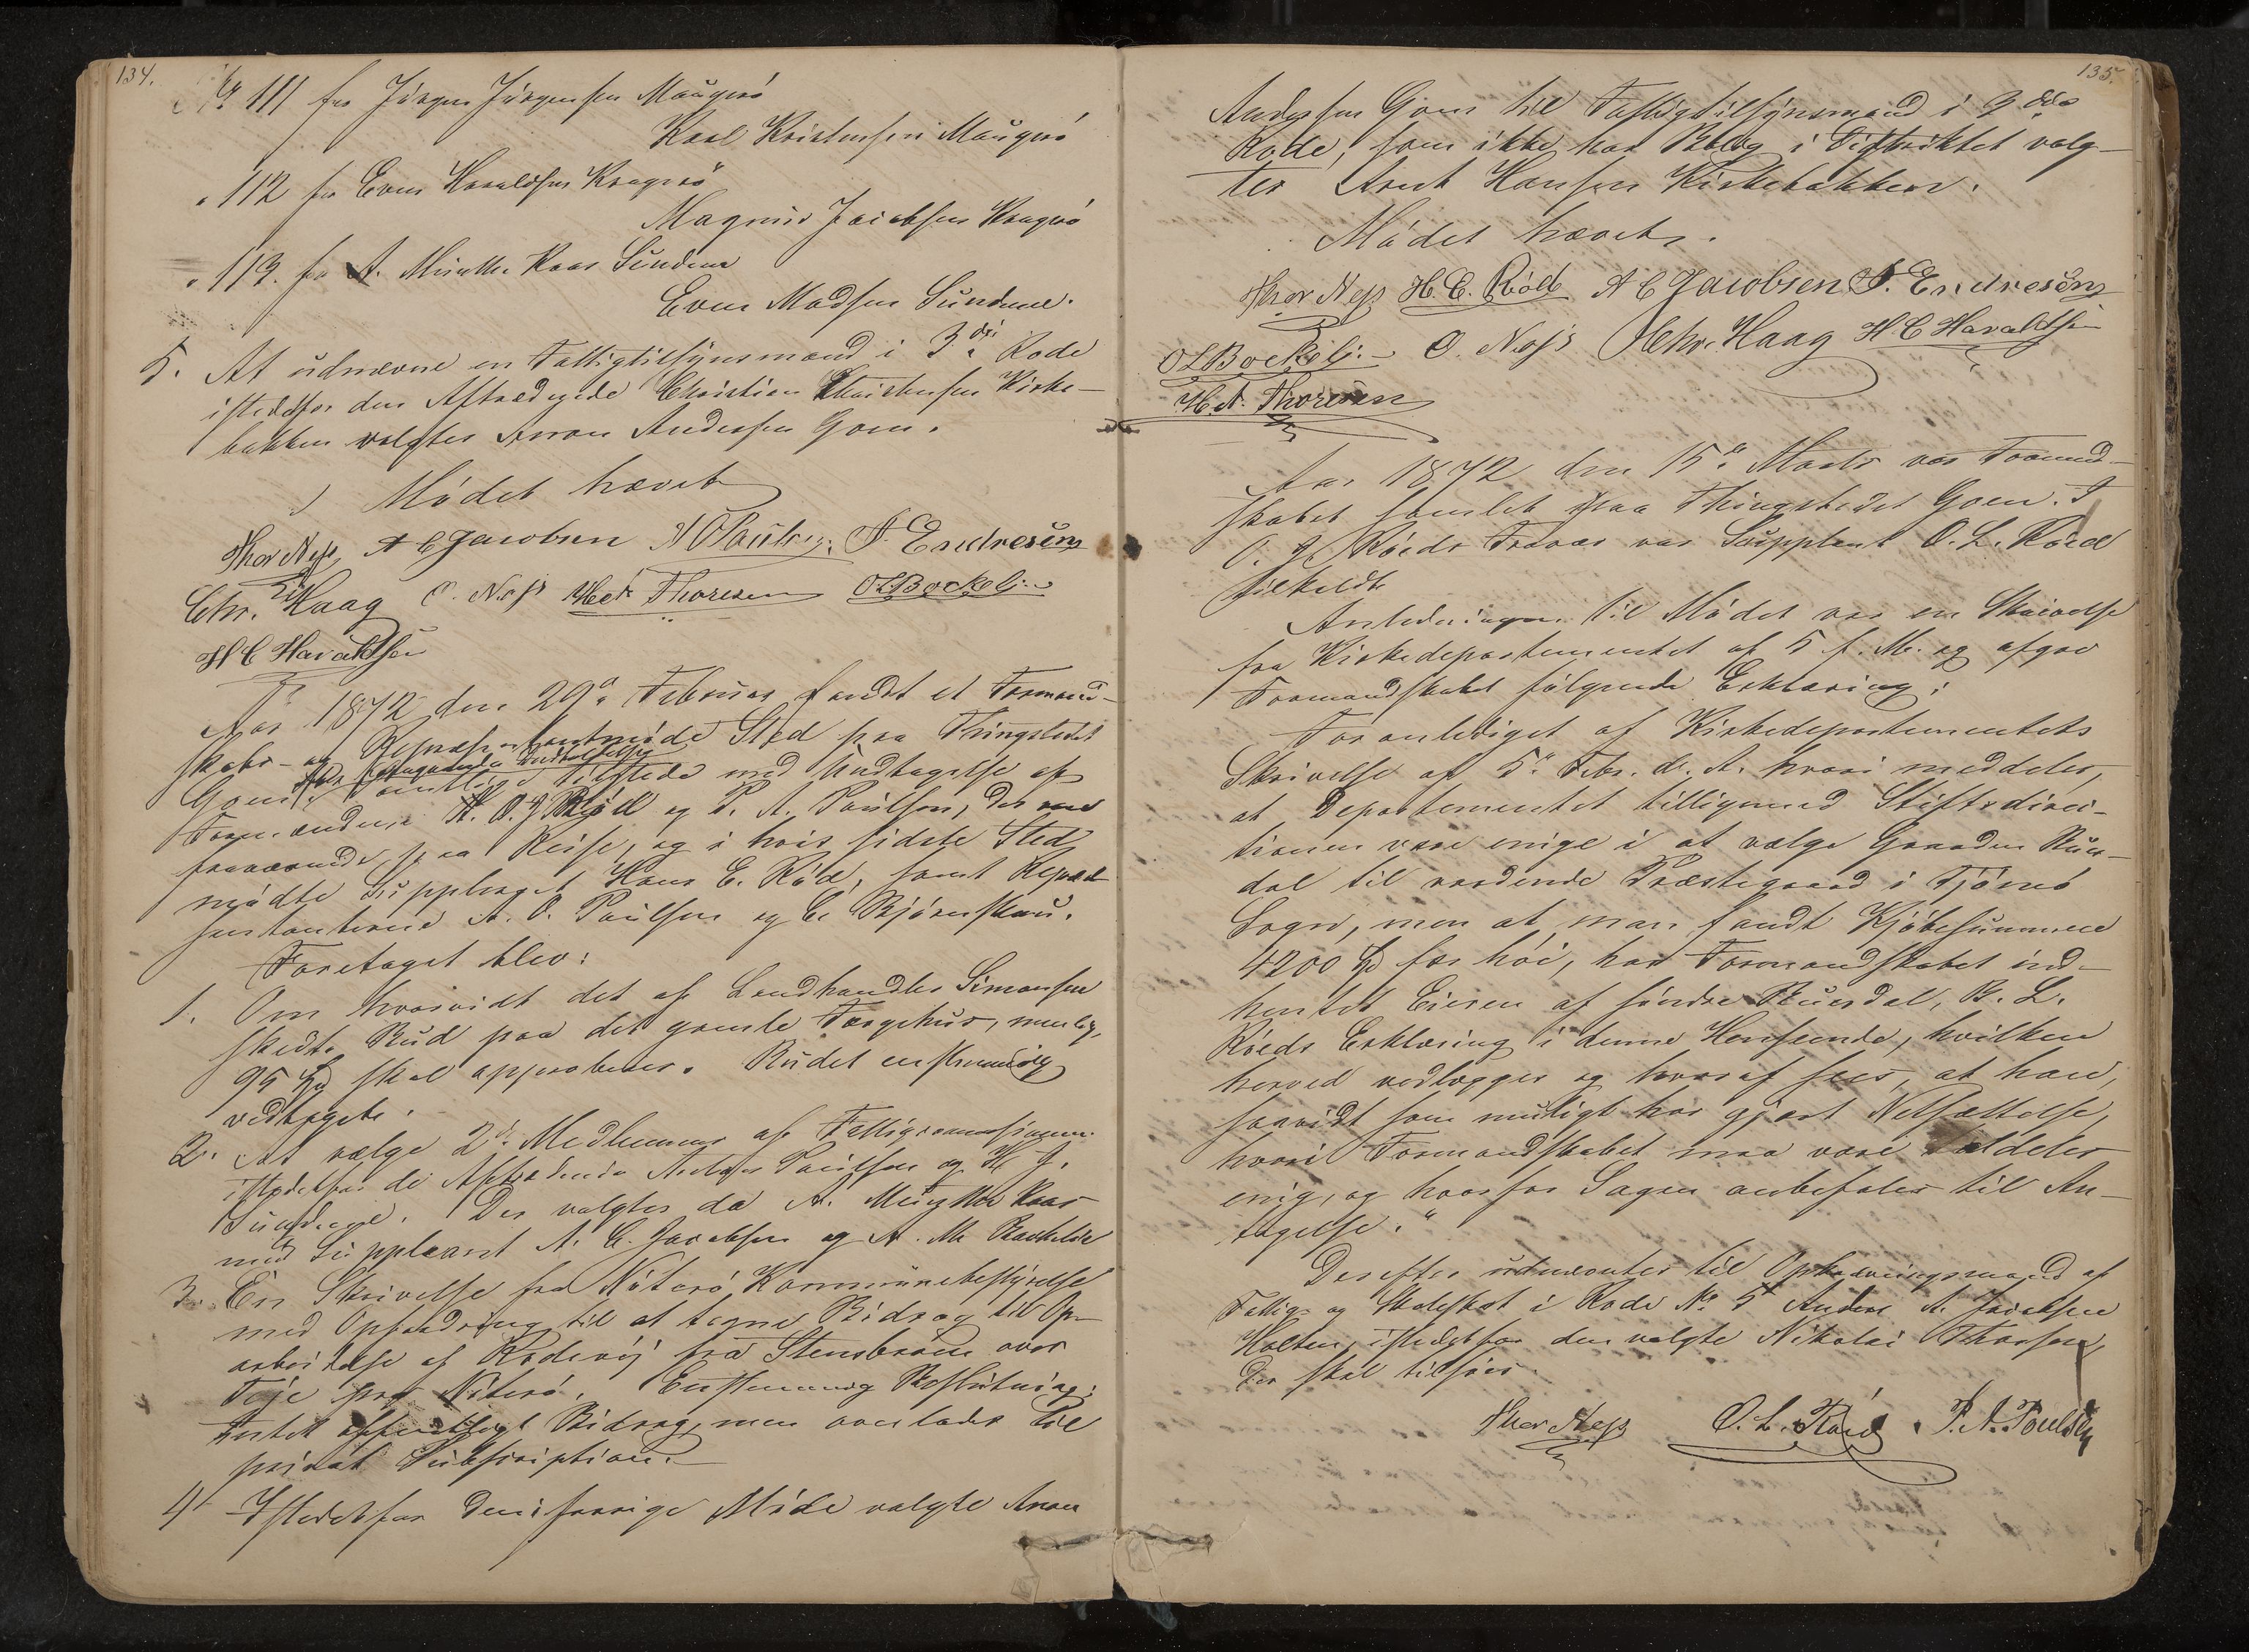 134.
No 111 for Jörgen Jörgensen Maugerö
Karl Kristensen Maugerö
" 112 for Even Haraldsen Kragerö
Magnus Jacobsen Kragerö
" 113. for A. Münster Kaas Sundene
Even Madsen Sundene.
5. At udnævne en Fattigtilsynsmand i 3die Rode
istedetfor den Aftrædende Christian Christensen Kirke-
bakken valgtes Anton Andersen Goen.
Mödet hævet
Thor Næss A C Jacobsen N O Paulsen F. Endresen
Chr. Haag O. Næss H. A. Thoresen O L Bockelj:
H C Haraldsen
Aar 1872 den 29de Februar havdt et Formand-
skabs- og Repræsentantmöde Sted paa Thingstedet
Goen. Samtlige tilstede med Undtagelse af
Formændene H. O. J Röd og P. A. Paulsen, der vare
fraværende paa Reise, og i hvis sidste Sted
mödte Suppleant Hans C. Röd, samt Repræ-
sentanterne N. O. Paulsen og C. Bjørnskau.
Foretaget blev:
1. Om hvorvidt det af Landhandler Simonsen
skedte Bud paa det gamle Færgehus, nemlig,
95 Spd skal approberes. Budet enstemmig
vedtaget.
2. At vælge 2de Medlemmer af Fattigcommisionen
istedetfor de Aftrædende Anders Paulsen og H. J.
Sundene. Der valgtes da A. Münster Kaas
med Suppleant A. C. Jacobsen og A. M.
3. En Skrivelse fra Nöterö Kommunebestyrelse
med Opfordring til at tegne Bidrag til Op-
arbeidelse af Rodevej fra Stensbroen over
Teje paa Nöterö. Enstemmig Beslutning:
Intet offentligt Bidrag, men overlades til
privat Subscription.
4. Istedetfor den i forrige Möde valgte Anton
135.
Andersen Goen til Fattigtilsynsmand i 3die
Rode, som ikke har Bolig i Distriktet valg-
tes Arnt Hansen Kirkebakken.
Mödet hævet.
Thor Næss H. C. Röd A C Jacobsen F. Endresen
O L Bockelj: O. Næss Chr. Haag H C Haraldsen
H. A. Thoresen
Aar 1872 den 15de Marts var Formand-
skabet samlet paa Thingstedet Goen. I
O. J. Röeds Fravær var Suppleant O. L. Röed
tilkaldt
Anledningen til Mödet var en Skrivelse
fra Kirkedepartementet af 5 f. M. og afgav
Formandskabet fölgende Erklæring:
Foranlediget af Kirkedepartementets
Skrivelse af 5te Febr. d. A. hvori meddeles,
at Departementet tilligemed Stiftsdirec-
tionen vare enige i at vælge Gaarden Buer-
dal til vordende Præstegaard i Tjömö
Sogn, men at man fandt Kjöbesummen
4200 Spd for höi, har Formandskabet ind-
hentet Eieren af söndre Buerdal, B. L.
Röeds Erklæring i denne Henseende, hvilken
herved vedlægges og hvoraf sees, at han,
saavidt som muligt har gjort Nedsættelse,
hvori Formandskabet maa være aldeles
enig, og hvorfor Sagen anbefales til An-
tagelse."
Derefter udnævntes til Opkrævningsmand af
Fattig- og Skoleskat i Rode No 5 Anders A. Jacobsen
Holten, istedetfor den valgte Nikolai Thorsen,
der skal tilsöes.
Thor Næss O. L. Röed. P. A. Poulsen